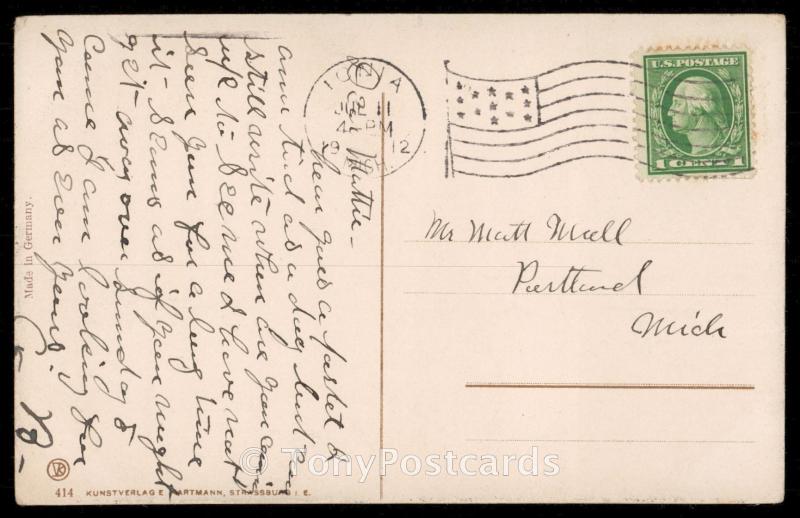 Dear Mattie -
Hear goes a postel I
am tird as a dog but am
still write when are you coming
up to see me I have not
seen you for a long time
it - seams as if you might
get away over Sunday &
Come I am looking for
you as ever yours.
IONIA
JUL 11
4 PM
1912
MICH.
U.S. POSTAGE
1 CENT 1
Mr Matt Mall
Portland
Mich
Made in Germany.
414 KUNSTVERLAG E HARTMANN, STRASSBURG I. E.
© TonyPostcards